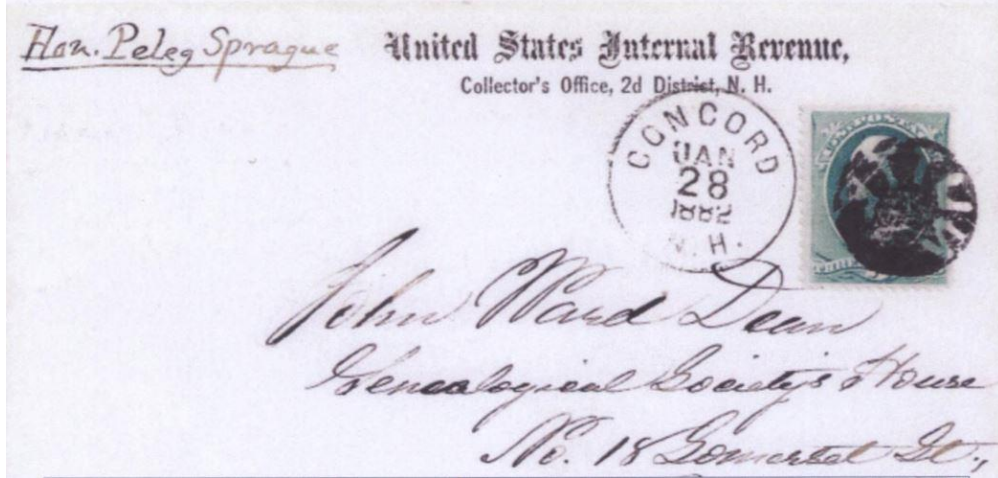 Hon. Peleg Sprague
United States Internal Revenue,
Collector's Office, 2d District, N. H.
CONCORD
JAN
28
1882
N.H.
John Ward Dean
Genealogical Society's House
No. 18 Somerset St.,